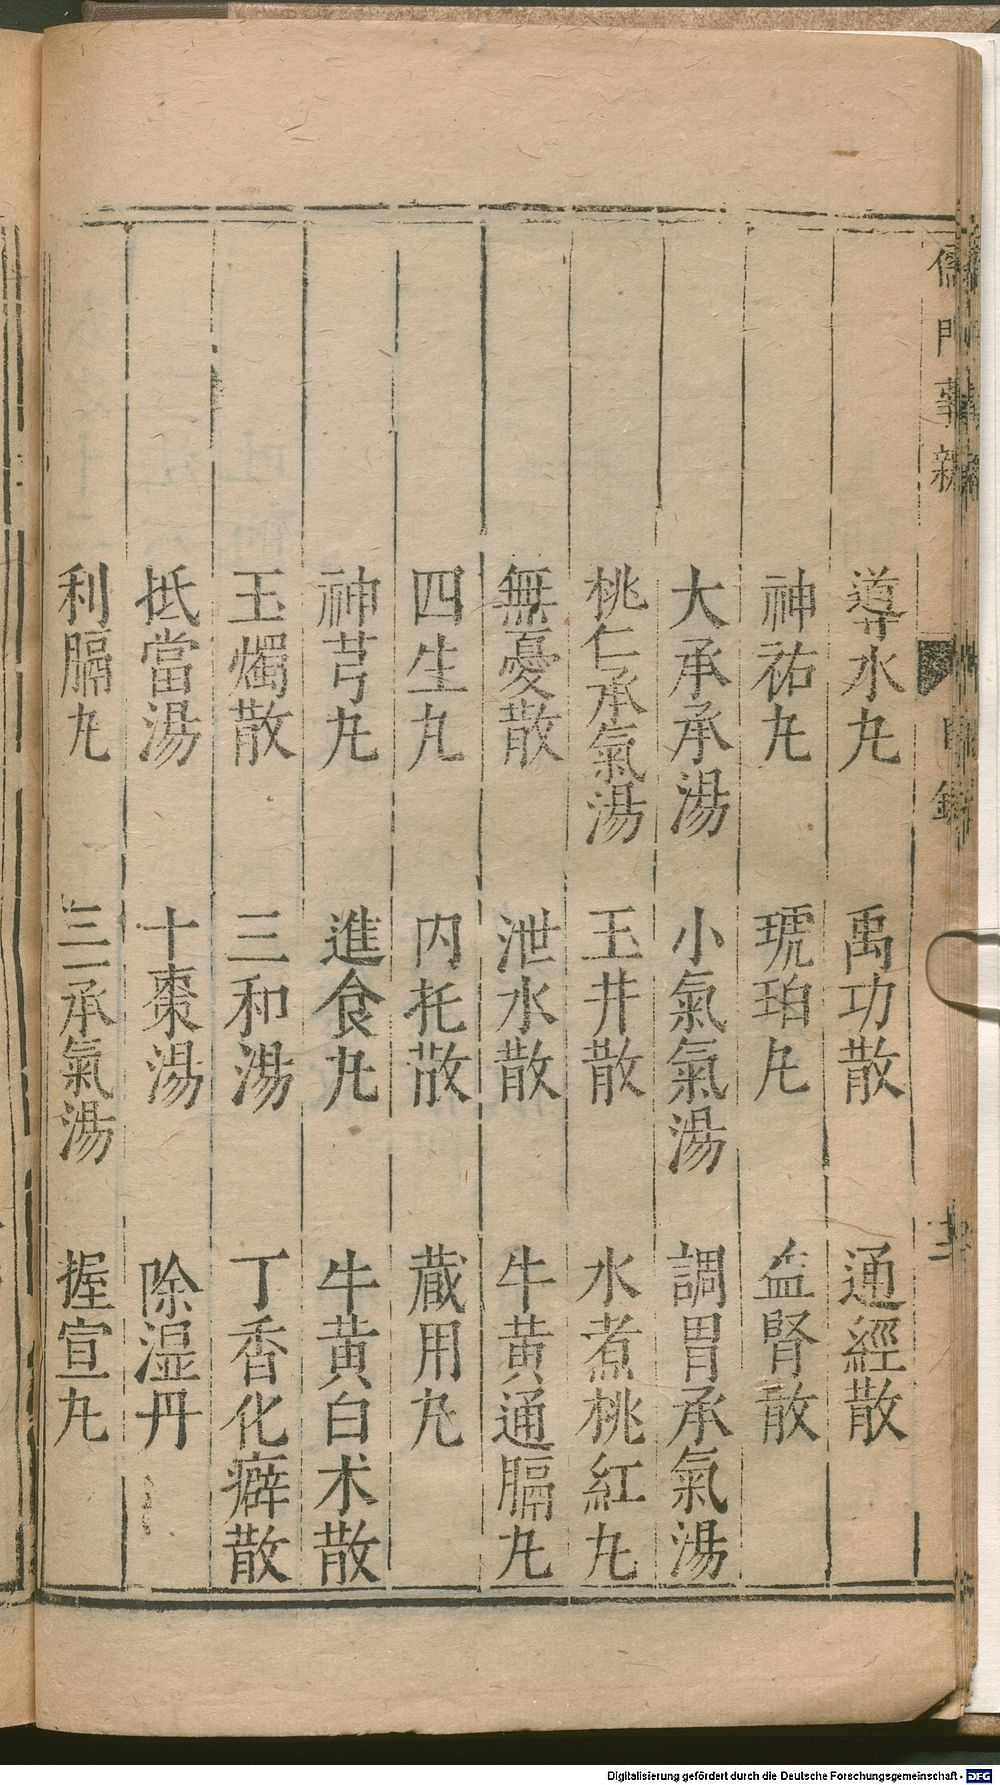 儒門事親
目錄
導水丸 禹功散 通經散
神祐丸 琥珀丸 益腎散
大承承湯 小氣氣湯 調胃承氣湯
桃仁承氣湯 玉井散 水煮桃紅丸
無憂散 泄水散 牛黄通膈丸
四生丸 内托散 蔵用丸
神芎丸 進食丸 牛黄白术散
玉燭散 三和湯 丁香化癖散
抵當湯 十棗湯 除湿丹
利膈丸 三一承氣湯 握宣丸
Digitalisierung gefördert durch die Deutsche Forschungsgemeinschaft - DFG